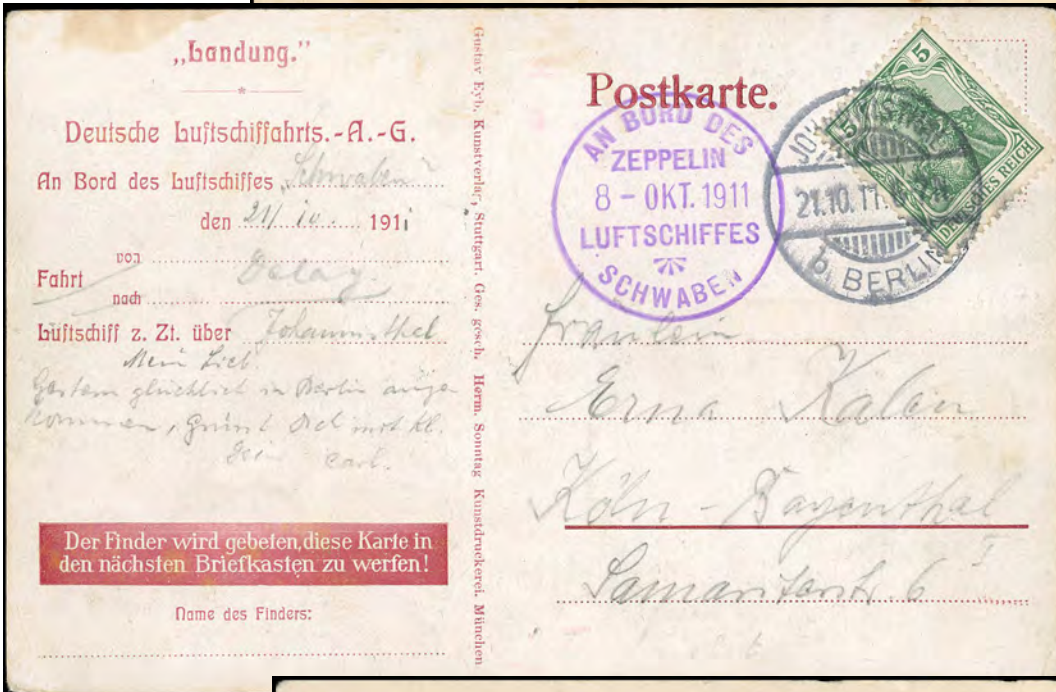 „Landung.”
Deutsche Luftschiffahrts.-A.-G.
An Bord des Luftschiffes Schwaben
den 21/10. 1911
von
Fahrt
nach
Luftschiff z. Zt. über Johannisthal
Mein Lieb.
Gestern glücklich in Berlin ange
kommen, grüsst Dich mit Kl.
Dein Carl.
Der Finder wird gebeten, diese Karte in
den nächsten Briefkasten zu werfen!
Name des Finders:
Gustav Eyb, Kunstverlag, Stuttgart. Ges. gesch. Herm. Sonntag Kunstdruckerei, München
Postkarte.
AN BORD DES
ZEPPELIN
8 - OKT. 1911
LUFTSCHIFFES
SCHWABEN
21.10.11.
b. BERLIN
5
5
DEUTSCHES REICH
Fräulein
Erna
Köln - Bayenthal
Samariterstr. 6 I